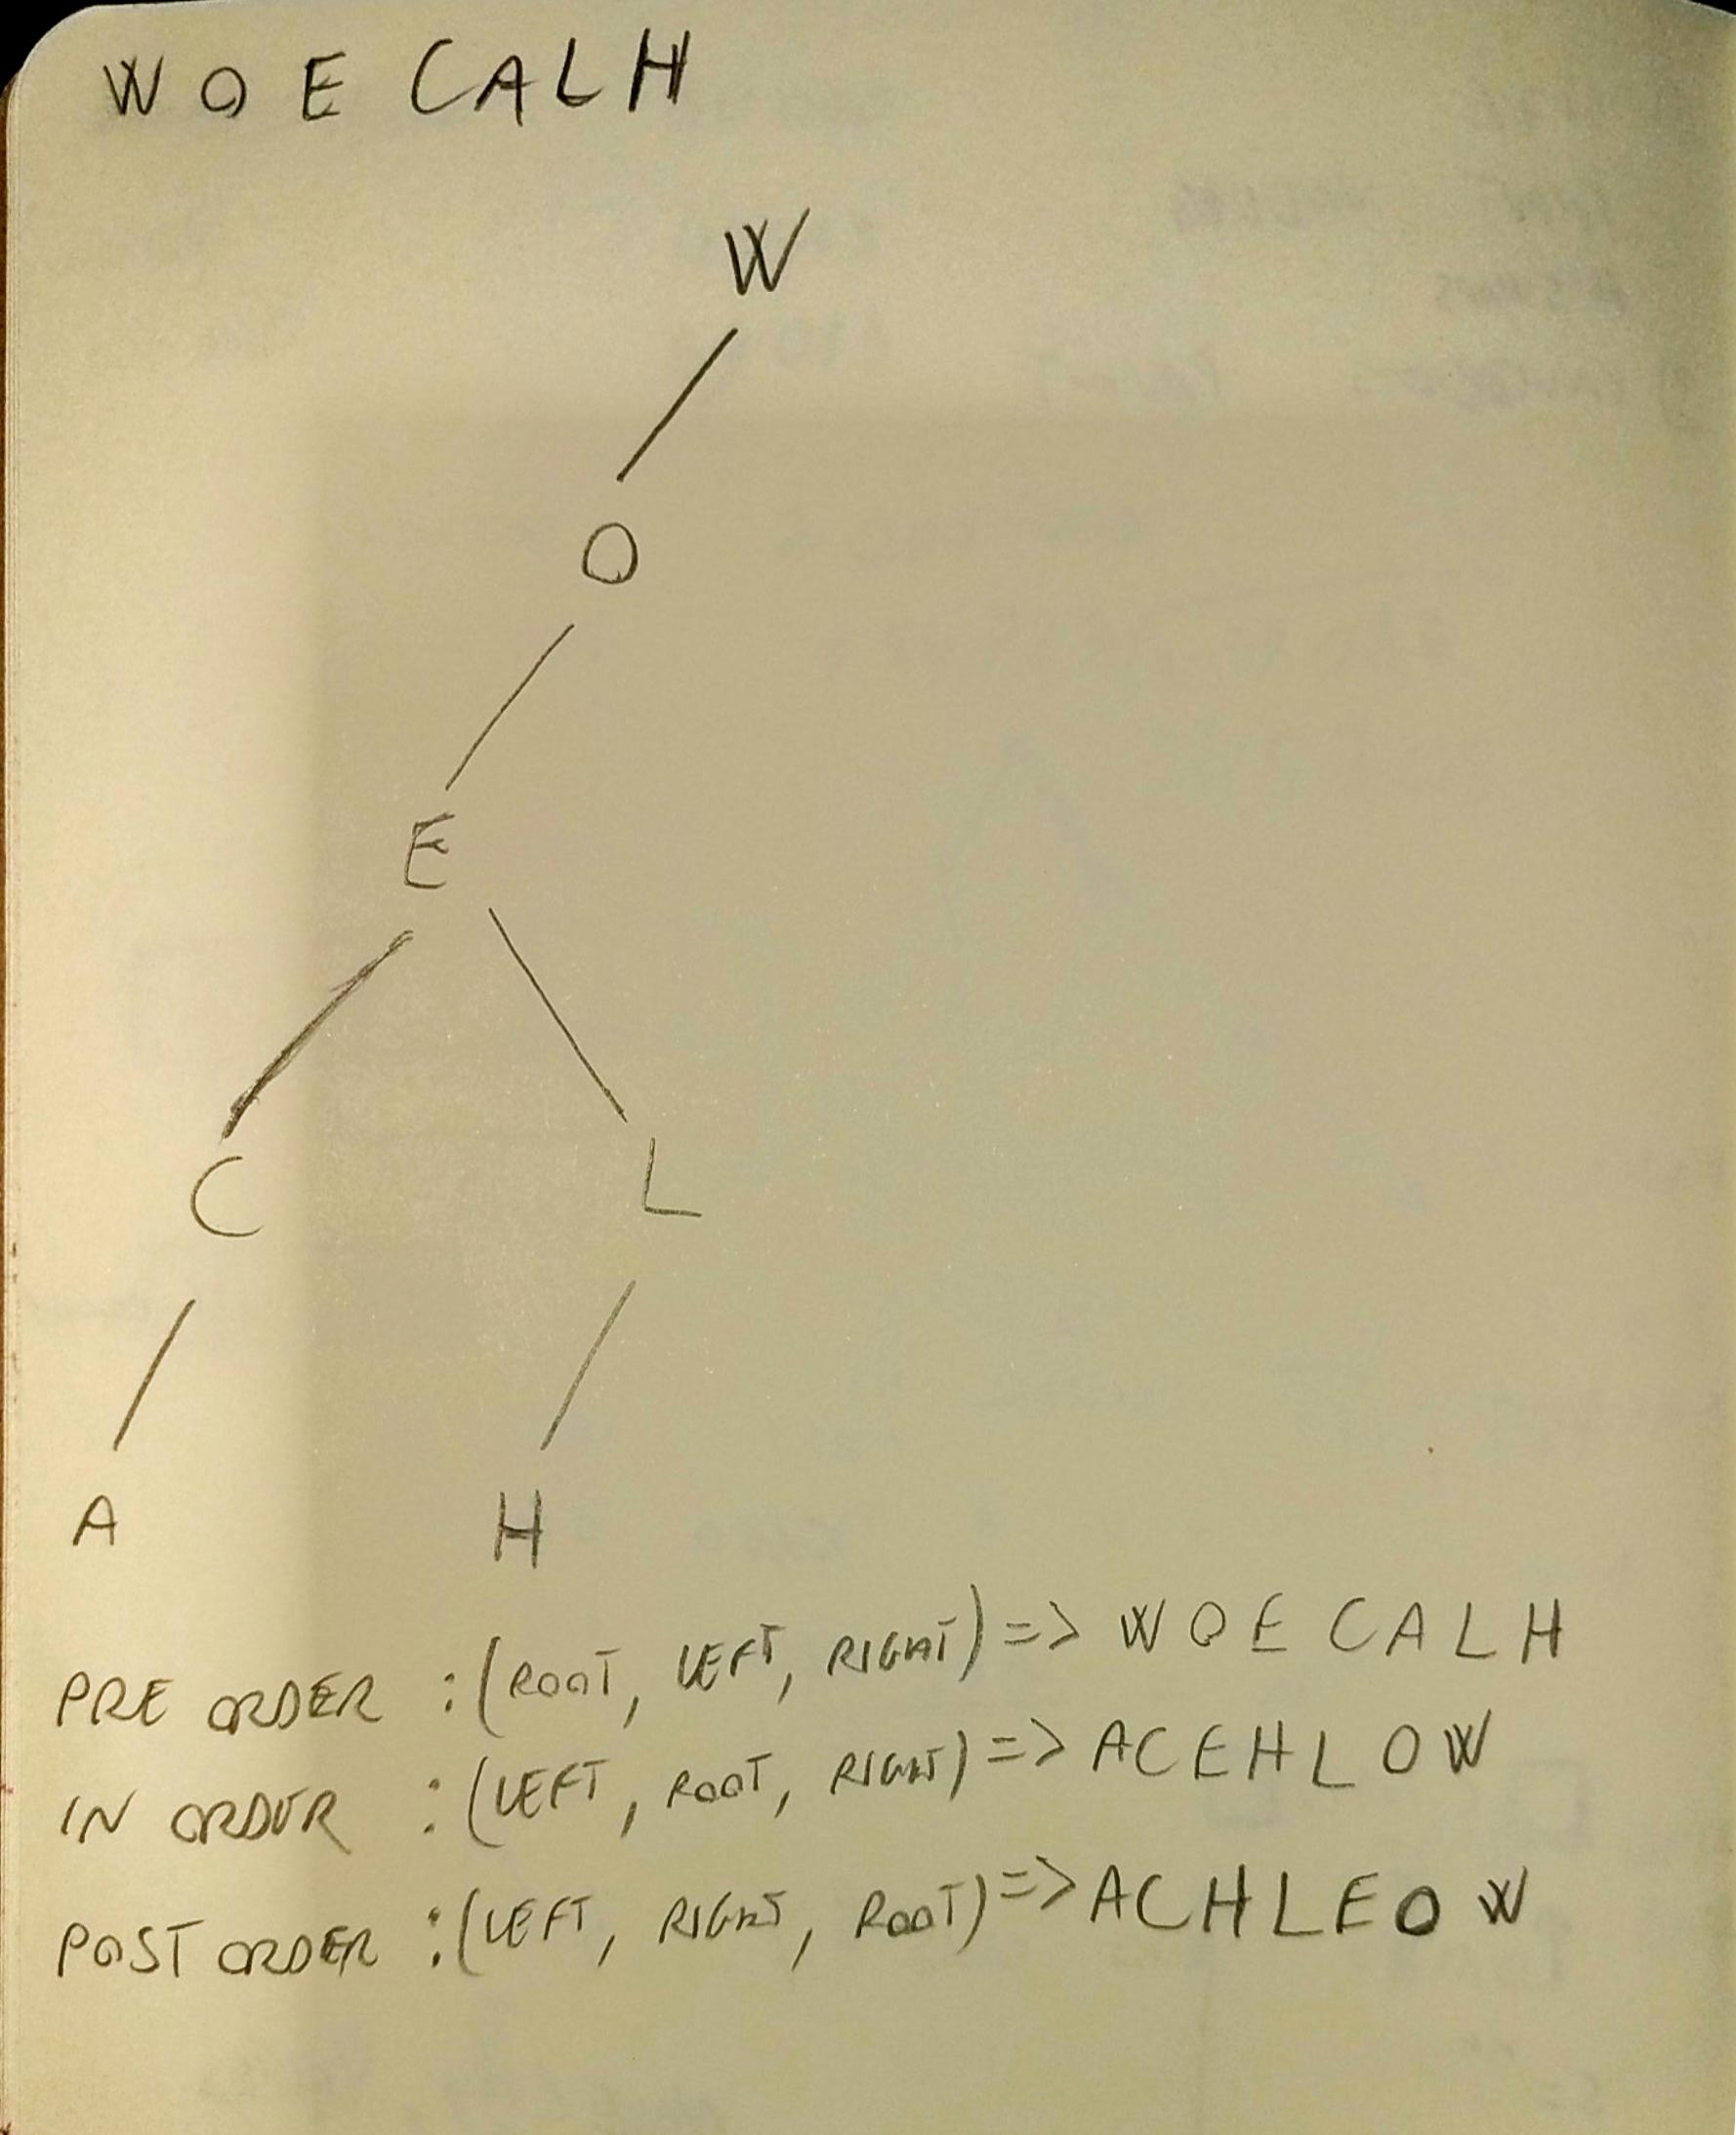 W O E C A L H
W
O
E
C L
A H
PRE ORDER : (ROOT, LEFT, RIGHT) => W O E C A L H
IN ORDER : (LEFT, ROOT, RIGHT) => A C E H L O W
POST ORDER : (LEFT, RIGHT, ROOT) => A C H L E O W